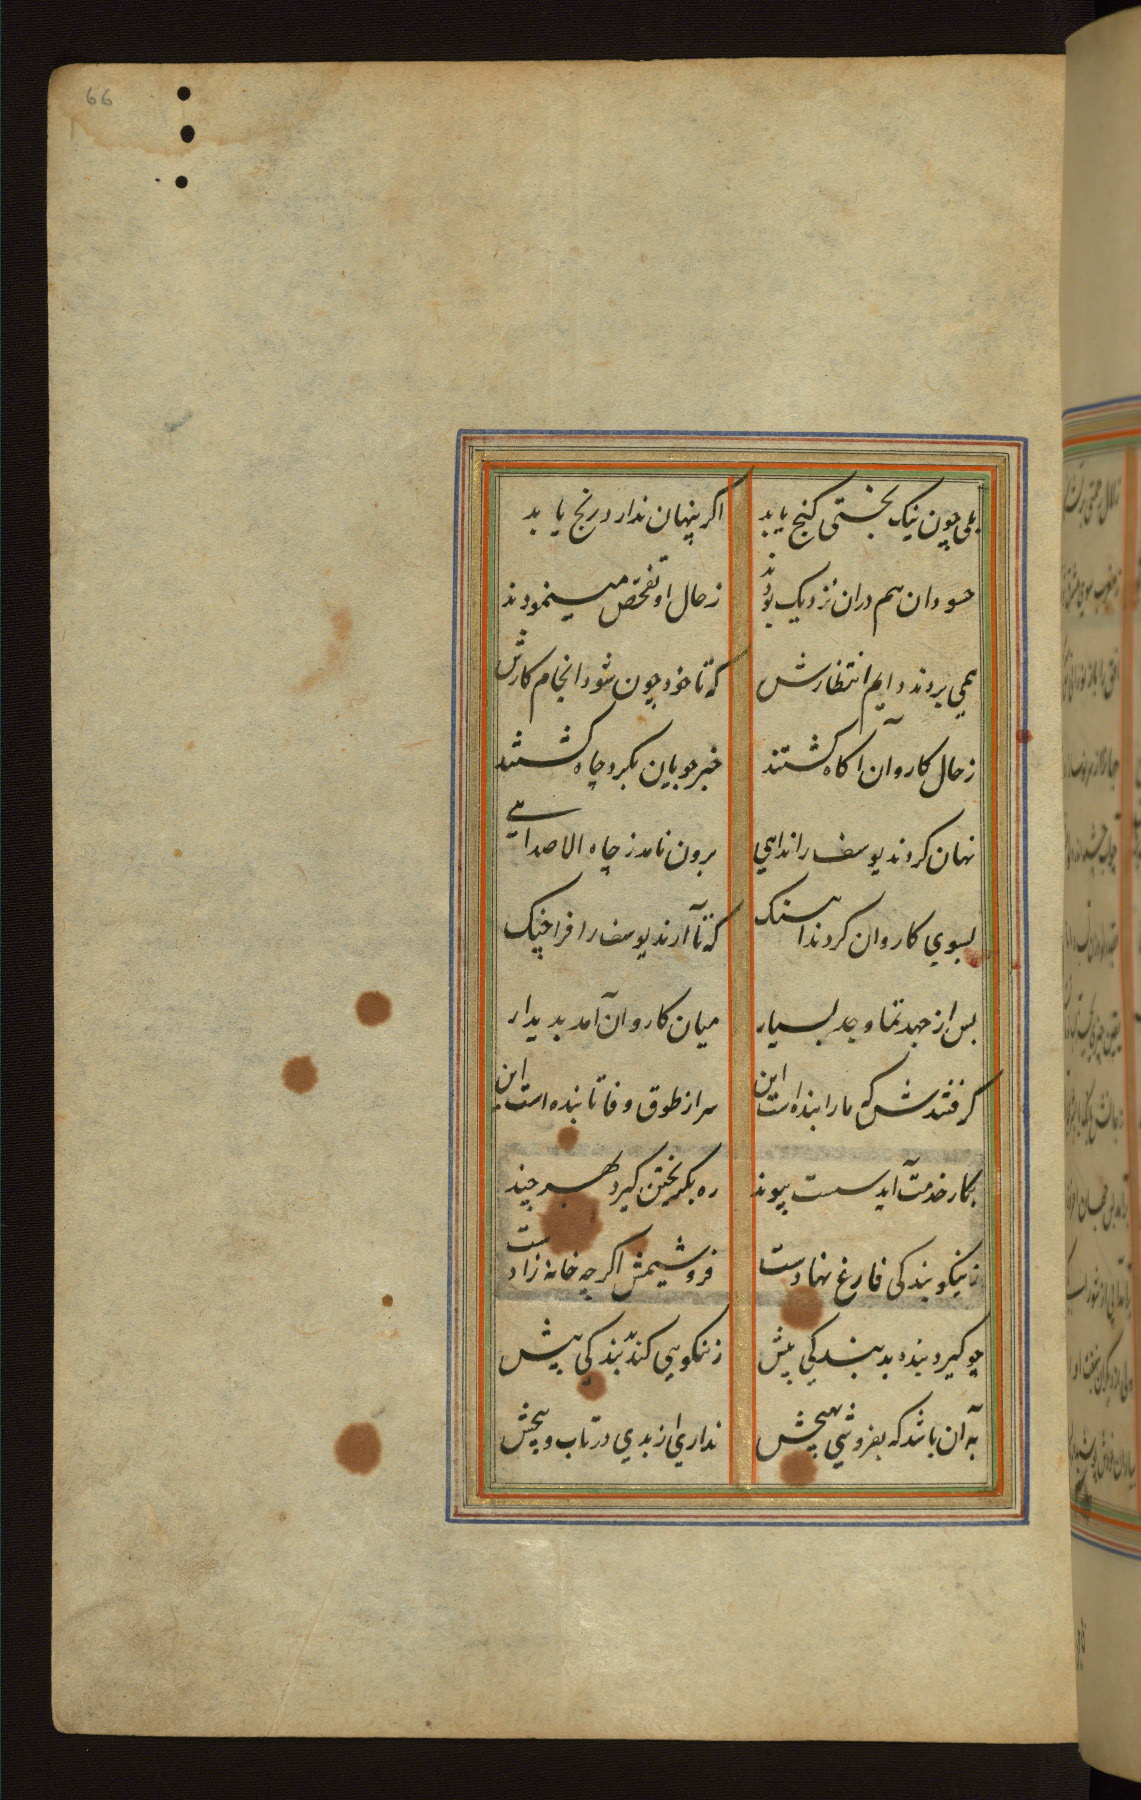 66
بلی چون نیک بختی کنج یابد اکر پنهان ندارد رنج یابد
حسودان هم دران نزدیک بودند ز حال او تفحص مینمودند
همی بردند دایم انتظارش که تا خود چون شود انجام کارش
ز حال کاروان آکاه کشتند خبر جویان بکرد چاه کشتند
نهان کردند یوسف را ندایی برون نامد ز چاه الا صدایی
بسوی کاروان کردند آهنک که تا آرند یوسف را فرا چنک
پس از جهد تمام و جد بسیار میان کاروان آمد پدیدار
کرفتندش که ما را بنده است این سر از طوق وفا تابنده است این
بکار خدمت آید سست پیوند ره بکریختن کیرد بهر چند
ز نیکو بندکی فارغ نهادست فروشیمش اکر چه خانه زادست
چو کیرد بنده بد بندکی پیش ز نیکویی کند بد بندکی بیش
به آن باشد که بفروشی بهیچش نداری از بدی در تاب و پیچش